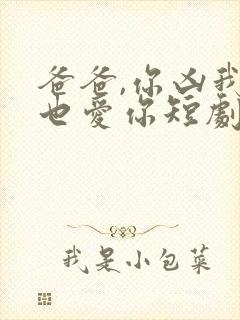 爸爸,你凶我
也愛你短劇
我是小包菜